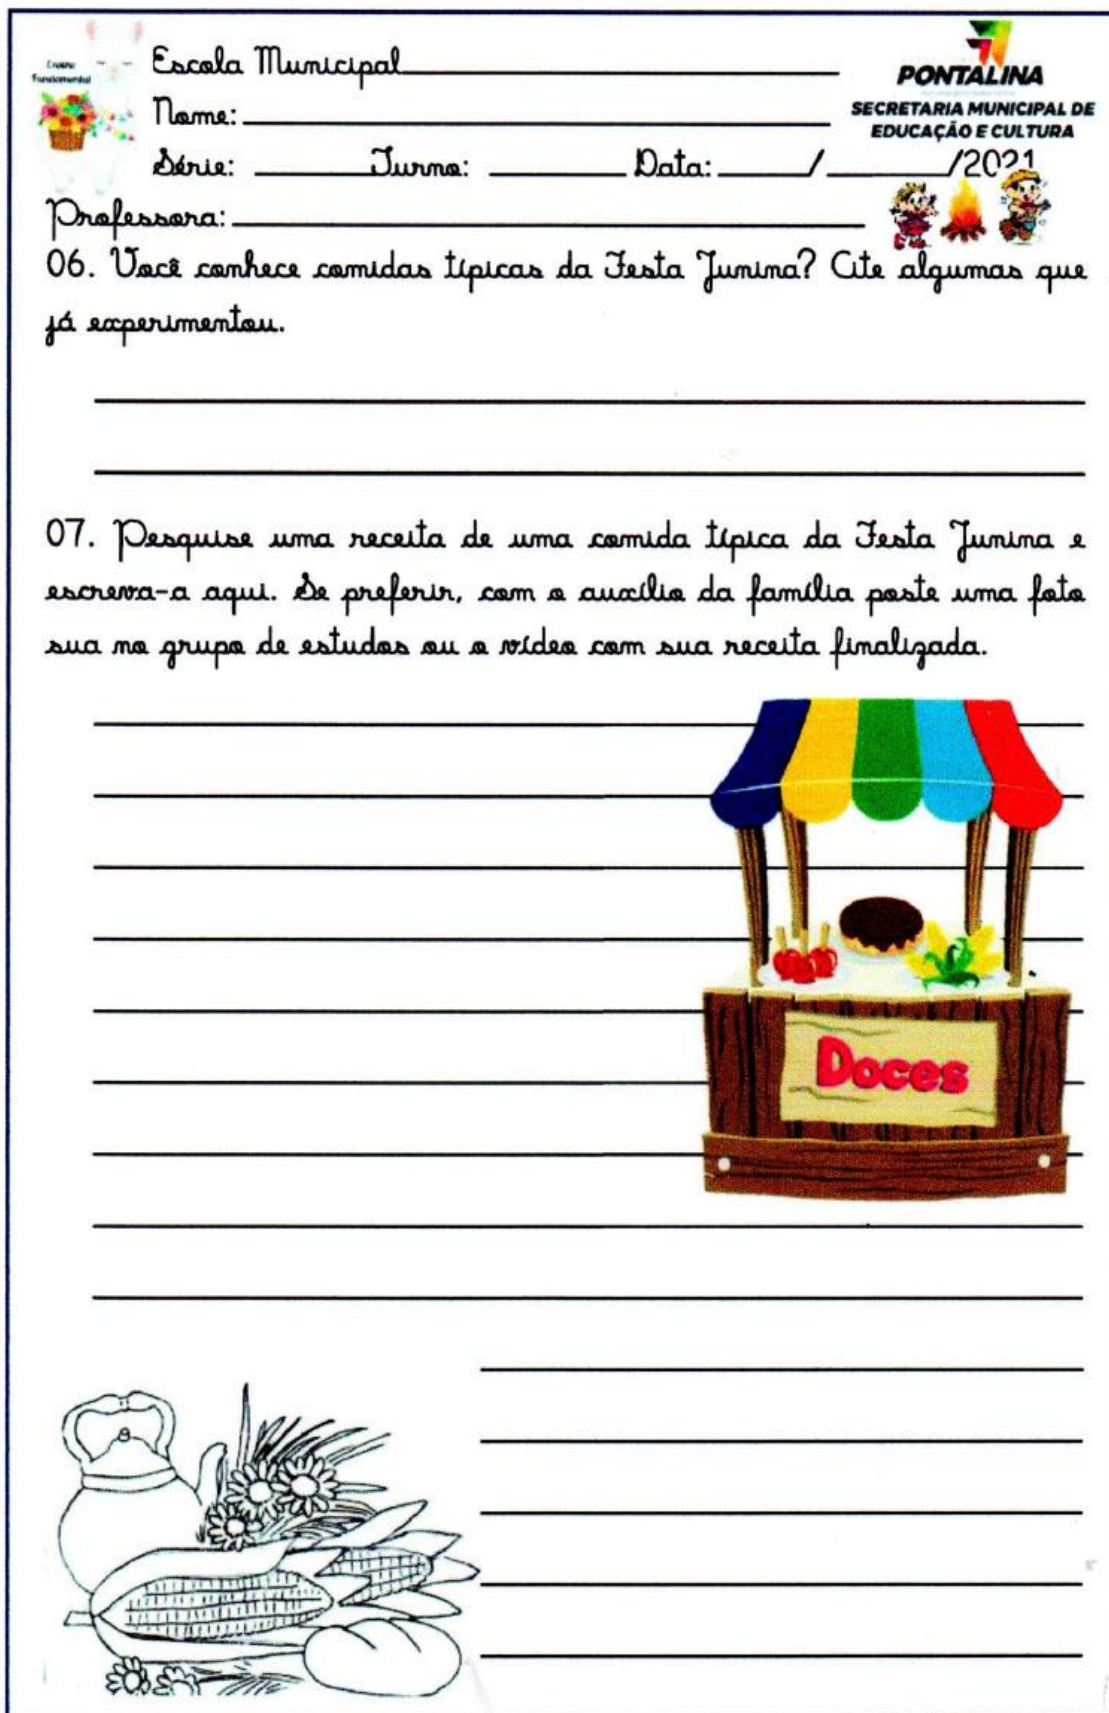 Ensino
Fundamental
Escola Municipal
PONTALINA
Nome:
SECRETARIA MUNICIPAL DE
EDUCAÇÃO E CULTURA
Série: Turno: Data: / /2021
Professora:
06. Você conhece comidas típicas da Festa Junina? Cite algumas que
já experimentou.
07. Pesquise uma receita de uma comida típica da Festa Junina e
escreva-a aqui. Se preferir, com o auxílio da família poste uma foto
sua no grupo de estudos ou o vídeo com sua receita finalizada.
Doces